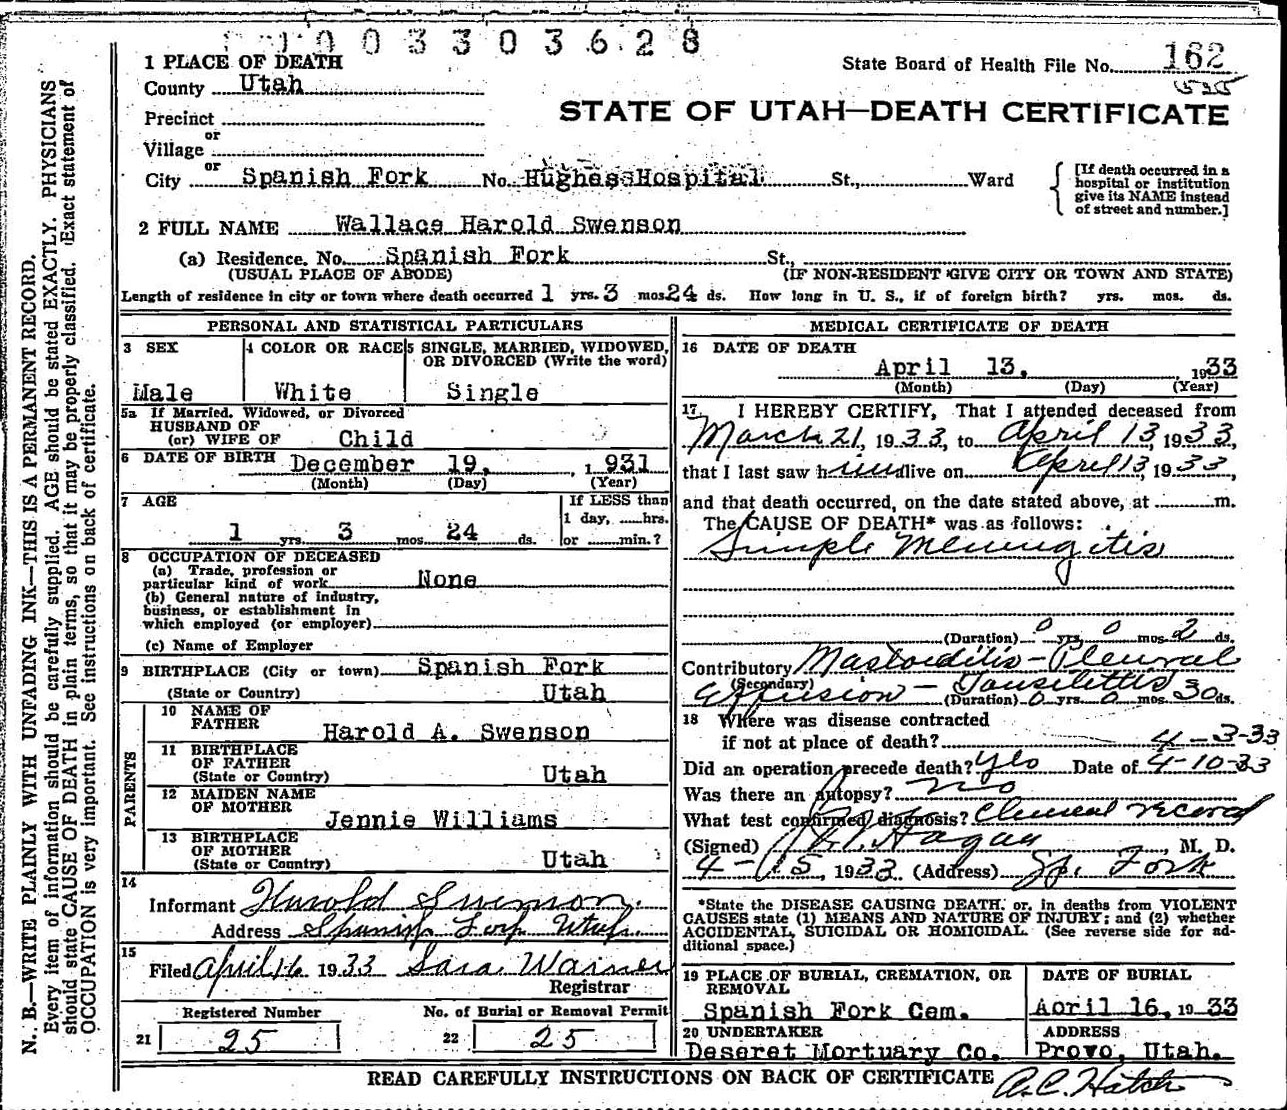 1003303628
1 PLACE OF DEATH
State Board of Health File No. 162
County Utah
535
STATE OF UTAH—DEATH CERTIFICATE
Precinct
or
Village
or
City Spanish Fork No. Hughes Hospital St., Ward
[If death occurred in a
hospital or institution
give its NAME instead
of street and number.]
2 FULL NAME Wallace Harold Swenson
(a) Residence. No. Spanish Fork St.,
(USUAL PLACE OF ABODE) (IF NON-RESIDENT GIVE CITY OR TOWN AND STATE)
Length of residence in city or town where death occurred 1 yrs. 3 mos. 24 ds. How long in U. S., if of foreign birth? yrs. mos. ds.
PERSONAL AND STATISTICAL PARTICULARS
3 SEX
Male
4 COLOR OR RACE
White
5 SINGLE, MARRIED, WIDOWED,
OR DIVORCED (Write the word)
Single
5a If Married, Widowed, or Divorced
HUSBAND OF
(or) WIFE OF Child
6 DATE OF BIRTH December 19, 1931
(Month) (Day) (Year)
7 AGE
1 yrs. 3 mos. 24 ds.
If LESS than
1 day, ......hrs.
or ......min.?
8 OCCUPATION OF DECEASED
(a) Trade, profession or
particular kind of work None
(b) General nature of industry,
business, or establishment in
which employed (or employer)
(c) Name of Employer
9 BIRTHPLACE (City or town) Spanish Fork
(State or Country) Utah
PARENTS
10 NAME OF
FATHER Harold A. Swenson
11 BIRTHPLACE
OF FATHER
(State or Country) Utah
12 MAIDEN NAME
OF MOTHER
Jennie Williams
13 BIRTHPLACE
OF MOTHER
(State or Country) Utah
14
Informant Harold Swenson
Address Spanish Fork Utah.
15
Filed April 16 1933 Sara Warner
Registrar
Registered Number
21 25
No. of Burial or Removal Permit
22 25
MEDICAL CERTIFICATE OF DEATH
16 DATE OF DEATH
April 13, 1933
(Month) (Day) (Year)
17. I HEREBY CERTIFY, That I attended deceased from
March 21, 1933, to April 13, 1933,
that I last saw him alive on April 13, 1933,
and that death occurred, on the date stated above, at ............m.
The CAUSE OF DEATH* was as follows:
Simple Meningitis
(Duration) 0 yrs. 0 mos. 2 ds.
Contributory Mastoiditis - Pleural
(Secondary)
Effusion - Tonsilettis
(Duration) 0 yrs. 0 mos. 30 ds.
18 Where was disease contracted
if not at place of death? 4-3-33
Did an operation precede death? Yes Date of 4-10-33
Was there an autopsy? No
What test confirmed diagnosis? Clinical record
(Signed) Hagan, M. D.
4-15, 1933. (Address) Sp. Fork
*State the DISEASE CAUSING DEATH, or, in deaths from VIOLENT
CAUSES state (1) MEANS AND NATURE OF INJURY; and (2) whether
ACCIDENTAL, SUICIDAL OR HOMICIDAL. (See reverse side for ad-
ditional space.)
19 PLACE OF BURIAL, CREMATION, OR
REMOVAL
Spanish Fork Cem.
DATE OF BURIAL
April 16, 1933
20 UNDERTAKER
Deseret Mortuary Co.
ADDRESS
Provo, Utah.
READ CAREFULLY INSTRUCTIONS ON BACK OF CERTIFICATE
A.C. Hatch
N. B.—WRITE PLAINLY WITH UNFADING INK—THIS IS A PERMANENT RECORD.
Every item of information should be carefully supplied. AGE should be stated EXACTLY. PHYSICIANS
should state CAUSE OF DEATH in plain terms, so that it may be properly classified. Exact statement of
OCCUPATION is very important. See instructions on back of certificate.